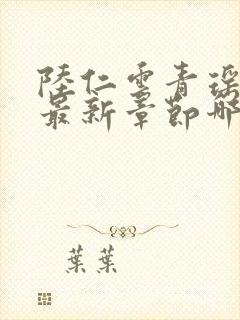 陸仁雲青瑤
最新章節哪
葉葉